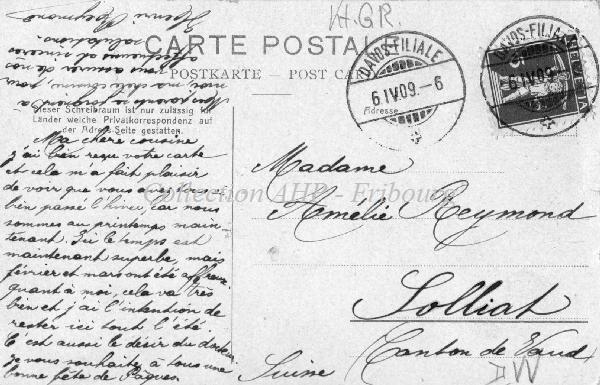 H.GR.
CARTE POSTALE
POSTKARTE – POST CARD
DAVOS-FILIALE
6.IV.09.-6
DAVOS-FILIALE
6.IV.09.
HELVETIA
5
Dieser Schreibraum ist nur zulässig für
Länder welche Privatkorrespondenz auf
der Adress-Seite gestatten.
Adresse
Ma chère cousine
j'ai bien reçu votre carte
et cela m'a fait plaisir
de voir que vous avez
bien passé l'hiver, car nous
sommes au printemps main-
tenant. Ici le temps est
maintenant superbe, mais
février et mars ont été affreux
quant à moi, cela va très
bien et j'ai l'intention de
rester ici tout l'été.
C'est aussi le désir du docteur
je vous souhaite à tous une
bonne fête de Pâques.
vous assurer de
salutations.
Henri Reymond
Madame
Amélie Reymond
Solliat
Canton de Vaud
Suisse
Collection AHP - Fribourg